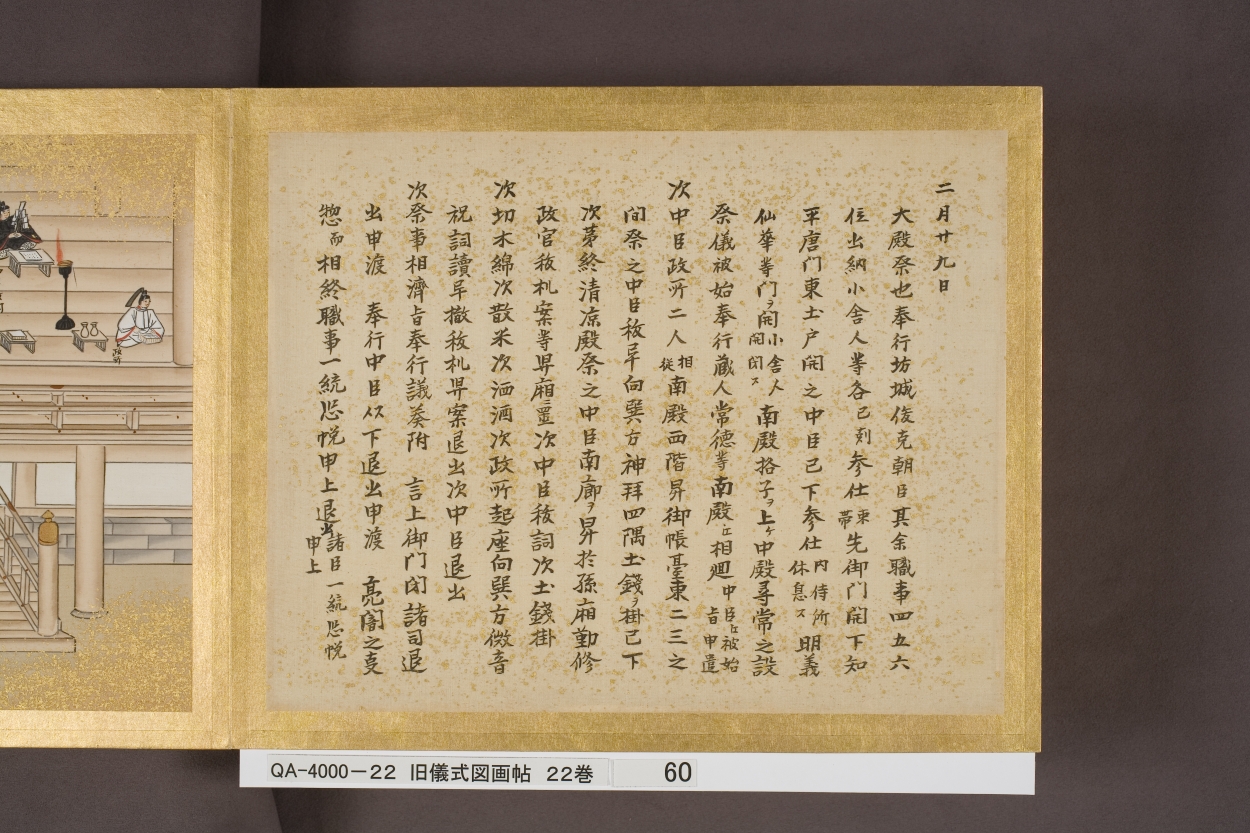 二月廿九日
大殿祭也奉行坊城俊克朝臣其余職事四五六
位出納小舎人等各已刻参仕束帯先御門開下知
平唐門東土戸開之中臣已下参仕内侍所休息ス明義
仙華等門ヲ開小舎人開閉ス南殿格子ヲ上ケ中殿尋常之設
祭儀被始奉行蔵人常徳等南殿江相廻中臣江被始旨申遣
次中臣政所二人相従南殿西階昇御帳臺東二三之
間祭之中臣秡畢向巽方神拝四隅土錢ヲ掛已下
次第終清凉殿祭之中臣南廊ヲ昇於孫廂勤修
政官秡札案等舁廂ニ置次中臣秡詞次土錢掛
次切木綿次散米次洒酒次政所起座向巽方微音
祝詞讀畢撤秡札舁案退出次中臣退出
次祭事相濟旨奉行議奏附 言上御門閉諸司退
出申渡 奉行中臣以下退出申渡 亮闇之支
惣而相終職事一統恐悦申上退出諸臣一統恐悦申上
政所
QA-4000-22 旧儀式図画帖 22巻 60